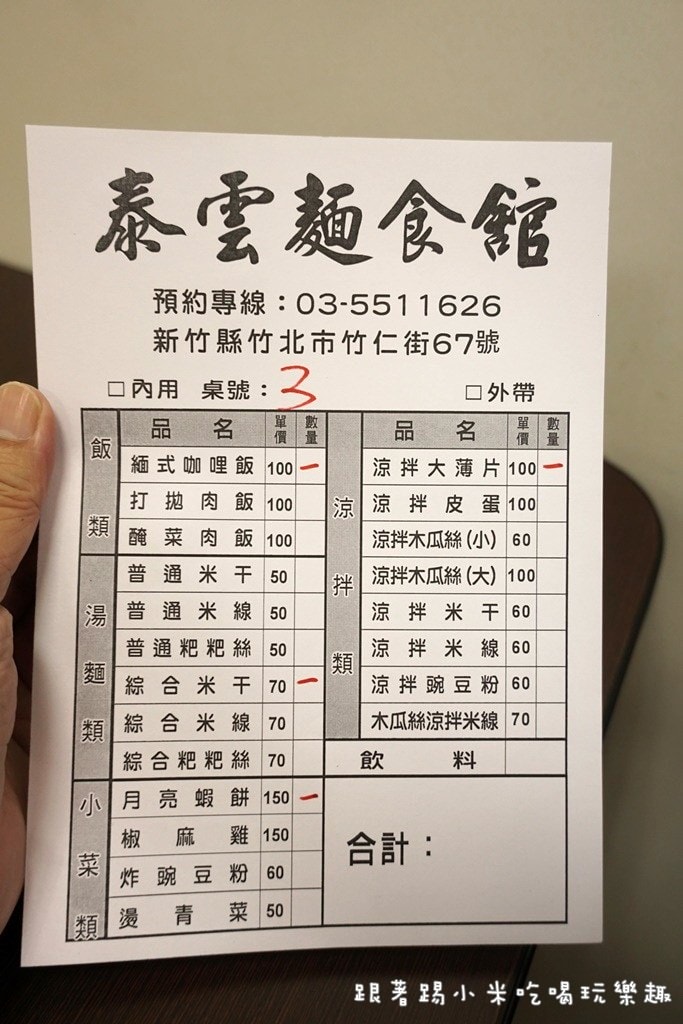 泰雲麵食館
預約專線：03-5511626
新竹縣竹北市竹仁街67號
□內用 桌號：3 □外帶
飯類
品名 單價 數量
緬式咖哩飯 100 一
打拋肉飯 100
醃菜肉飯 100
湯麵類
普通米干 50
普通米線 50
普通粑粑絲 50
綜合米干 70 一
綜合米線 70
綜合粑粑絲 70
小菜類
月亮蝦餅 150 一
椒麻雞 150
炸豌豆粉 60
燙青菜 50
涼拌類
品名 單價 數量
涼拌大薄片 100 一
涼拌皮蛋 100
涼拌木瓜絲(小) 60
涼拌木瓜絲(大) 100
涼拌米干 60
涼拌米線 60
涼拌豌豆粉 60
木瓜絲涼拌米線 70
飲料
合計：
跟著踢小米吃喝玩樂趣